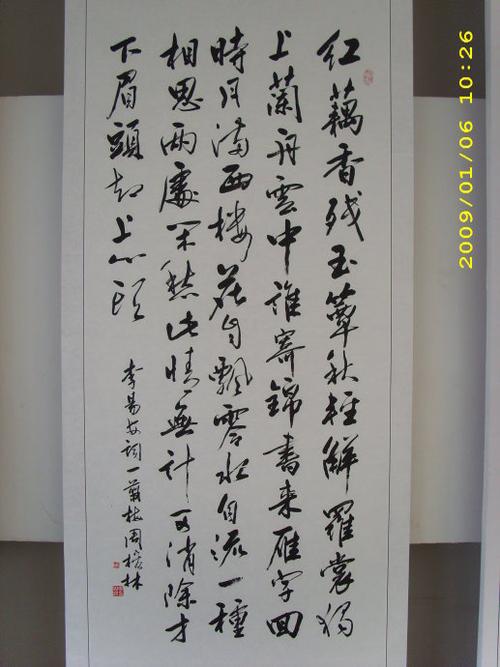 红藕香残玉簟秋軽解羅裳独
上蘭舟雲中誰寄錦書来雁字回
時月满西楼花自飄零水自流一種
相思两處闲愁此情無计可消除才
下眉頭却上心頭
李易安词一剪梅周林
2009/01/06 10:26